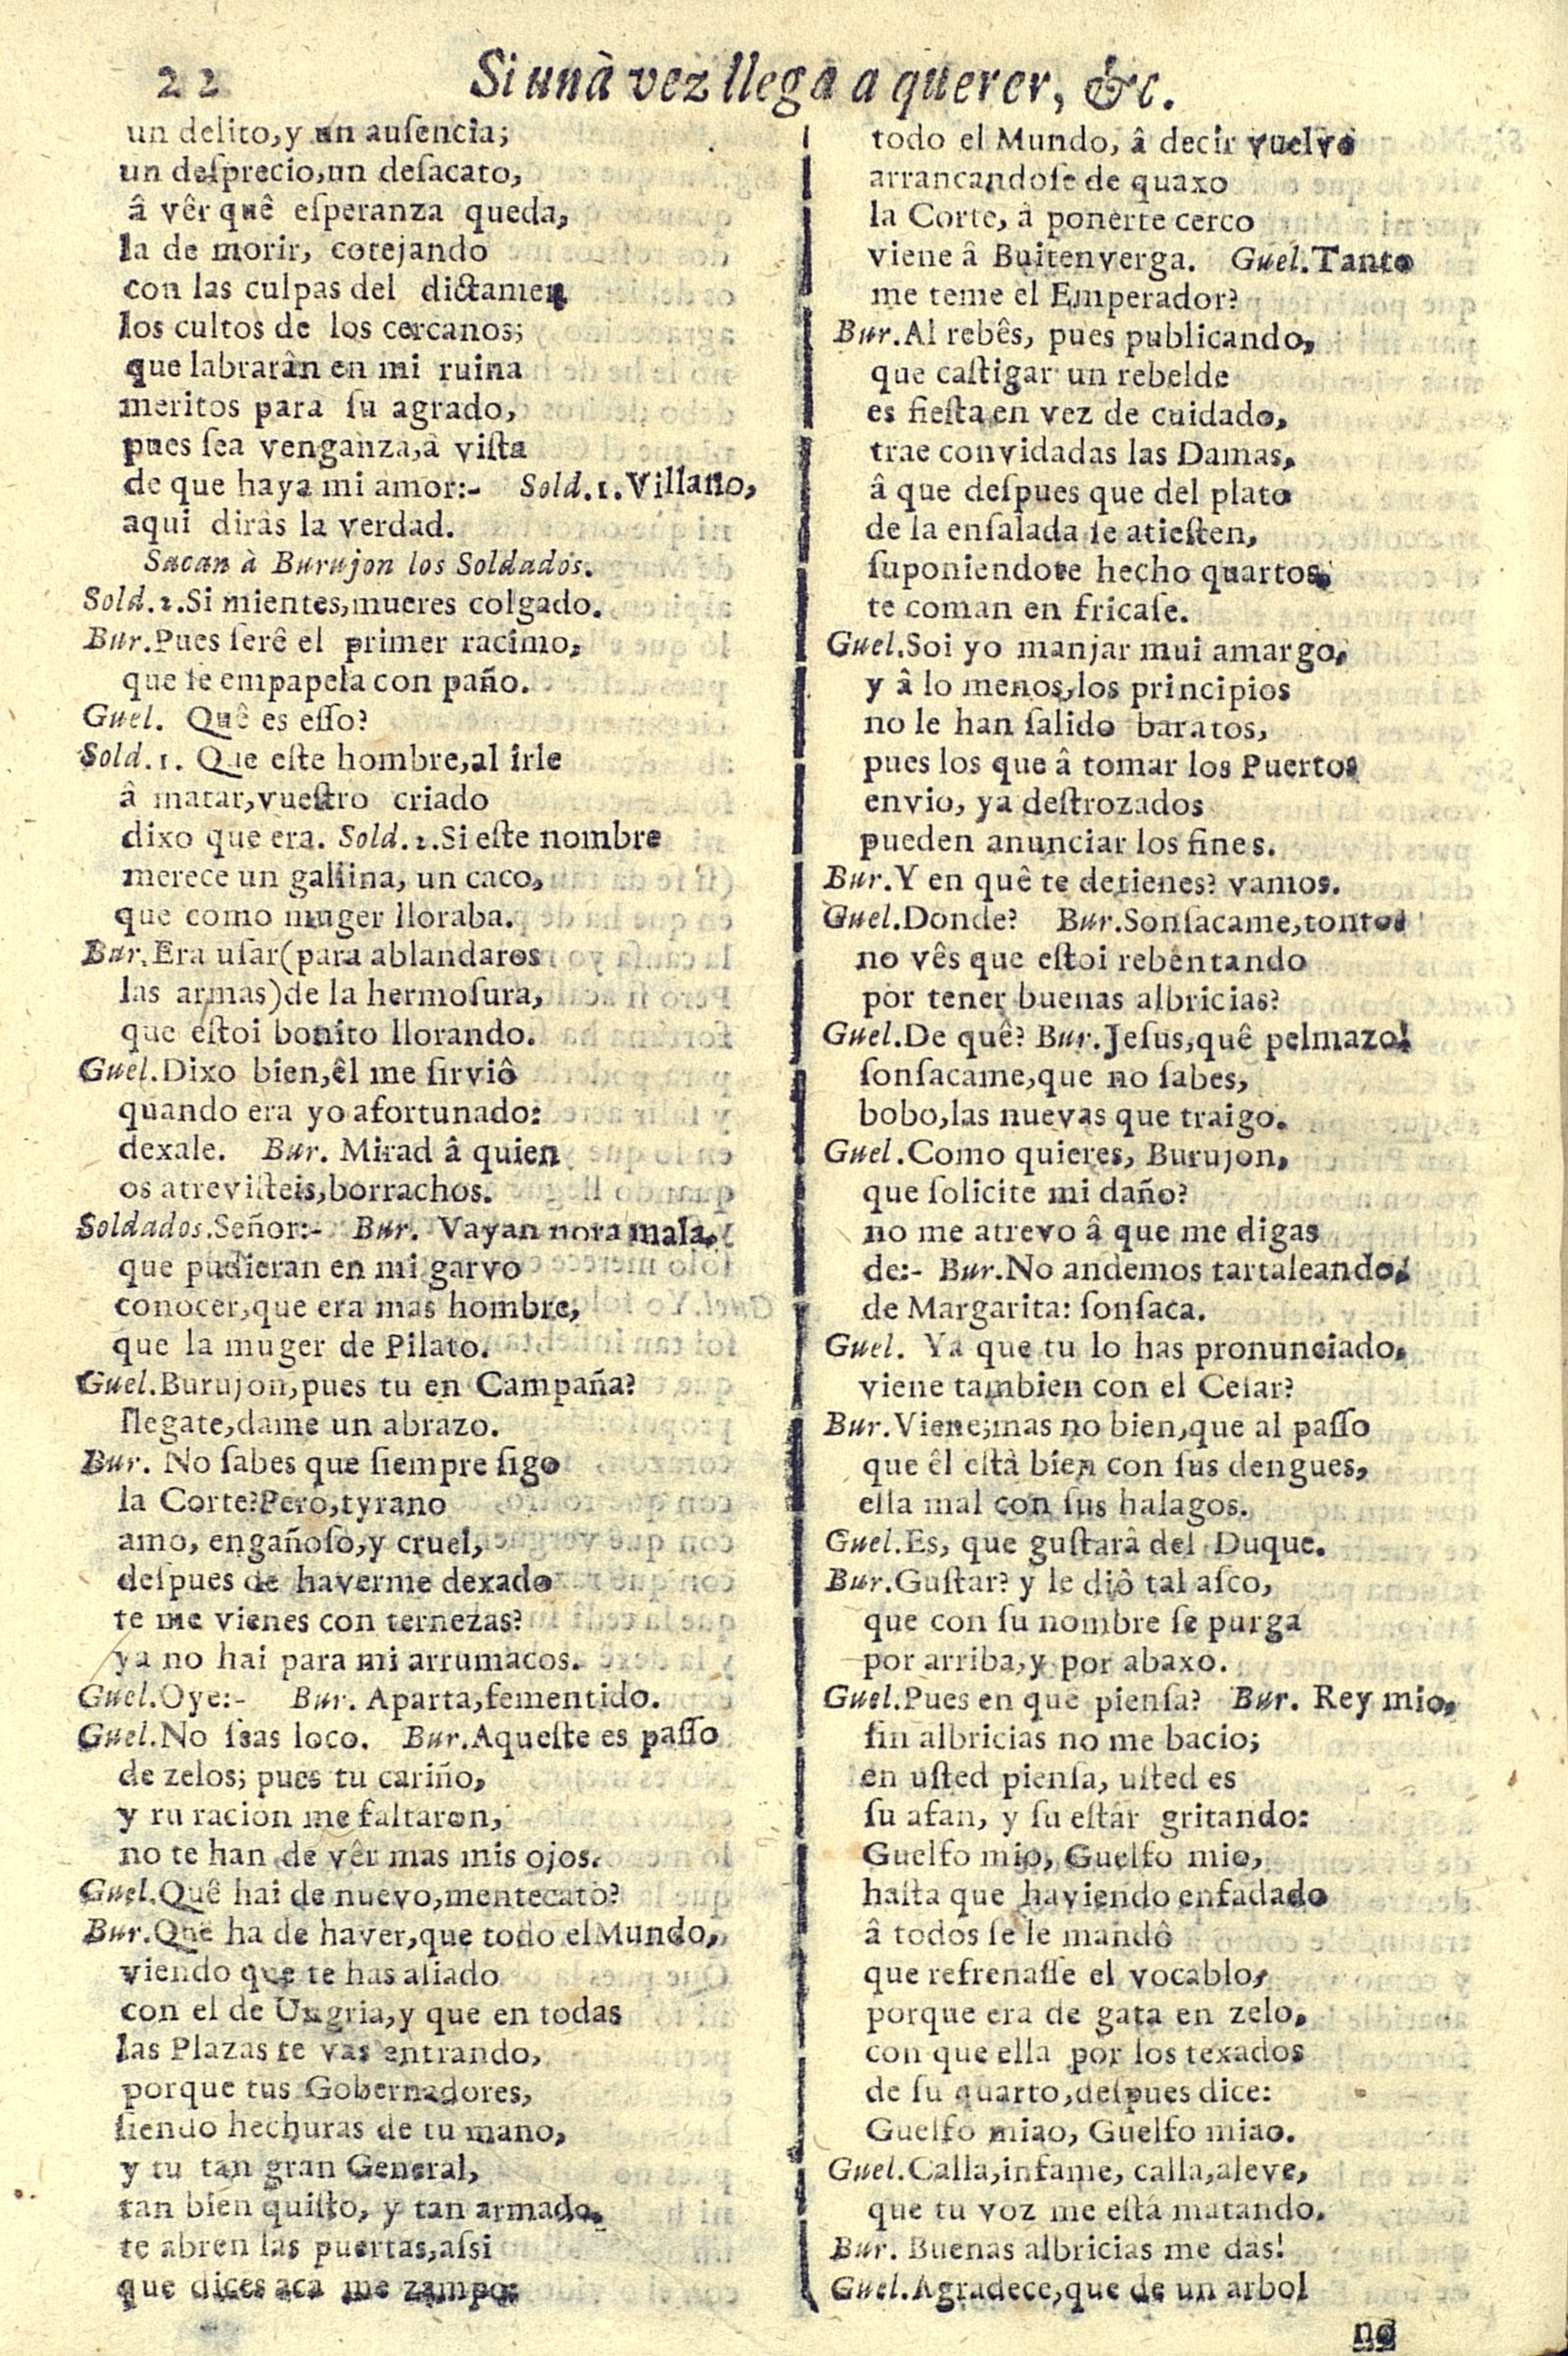 22 Si unà vez llega a querer, &c.
un delito, y un ausencia;
un desprecio, un desacato,
â vêr quê esperanza queda,
la de morir, cotejando
con las culpas del dictamen
los cultos de los cercanos;
que labrarân en mi ruina
meritos para su agrado,
pues sea venganza, â vista
de que haya mi amor:- Sold. 1. Villano,
aqui dirâs la verdad.
Sacan à Burujon los Soldados.
Sold. 2. Si mientes, mueres colgado.
Bur. Pues serê el primer racimo,
que se empapela con paño.
Guel. Quê es esso?
Sold. 1. Que este hombre, al irle
â matar, vuestro criado
dixo que era. Sold. 2. Si este nombre
merece un gallina, un caco,
que como muger lloraba.
Bur. Era usar (para ablandaros
las armas) de la hermosura,
que estoi bonito llorando.
Guel. Dixo bien, êl me sirviô
quando era yo afortunado:
dexale. Bur. Mirad â quien
os atrevisteis, borrachos.
Soldados. Señor:- Bur. Vayan nora mala,
que pudieran en mi garvo
conocer, que era mas hombre,
que la muger de Pilato.
Guel. Burujon, pues tu en Campaña?
llegate, dame un abrazo.
Bur. No sabes que siempre sigo
la Corte? Pero, tyrano
amo, engañoso, y cruel,
despues de haverme dexado
te me vienes con ternezas?
ya no hai para mi arrumacos.
Guel. Oye:- Bur. Aparta, fementido.
Guel. No seas loco. Bur. Aqueste es passo
de zelos; pues tu cariño,
y tu racion me faltaron,
no te han de vêr mas mis ojos.
Guel. Quê hai de nuevo, mentecato?
Bur. Que ha de haver, que todo el Mundo,
viendo que te has aliado
con el de Ungria, y que en todas
las Plazas te vas entrando,
porque tus Gobernadores,
siendo hechuras de tu mano,
y tu tan gran General,
tan bien quisto, y tan armado,
te abren las puertas, assi
que dices aca me zampo:
todo el Mundo, â decir vuelvo
arrancandose de quaxo
la Corte, â ponerte cerco
viene â Buitenverga. Guel. Tanto
me teme el Emperador?
Bur. Al rebês, pues publicando,
que castigar un rebelde
es fiesta en vez de cuidado,
trae convidadas las Damas,
â que despues que del plato
de la ensalada se atiesten,
suponiendote hecho quartos,
te coman en fricase.
Guel. Soi yo manjar mui amargo,
y â lo menos, los principios
no le han salido baratos,
pues los que â tomar los Puertos
envio, ya destrozados
pueden anunciar los fines.
Bur. Y en quê te detienes? vamos.
Guel. Donde? Bur. Sonsacame, tonto:
no vês que estoi rebentando
por tener buenas albricias?
Guel. De quê? Bur. Jesus, quê pelmazo!
sonsacame, que no sabes,
bobo, las nuevas que traigo.
Guel. Como quieres, Burujon,
que solicite mi daño?
no me atrevo â que me digas
de:- Bur. No andemos tartaleando,
de Margarita: sonsaca.
Guel. Ya que tu lo has pronunciado,
viene tambien con el Cesar?
Bur. Viene; mas no bien, que al passo
que êl està bien con sus dengues,
ella mal con sus halagos.
Guel. Es, que gustarâ del Duque.
Bur. Gustar? y le diô tal asco,
que con su nombre se purga
por arriba, y por abaxo.
Guel. Pues en que piensa? Bur. Rey mio,
sin albricias no me bacio;
en usted piensa, usted es
su afan, y su estár gritando:
Guelfo mio, Guelfo mio,
hasta que haviendo enfadado
â todos se le mandô
que refrenasse el vocablo,
porque era de gata en zelo,
con que ella por los texados
de su quarto, despues dice:
Guelfo miao, Guelfo miao.
Guel. Calla, infame, calla, aleve,
que tu voz me está matando.
Bur. Buenas albricias me das!
Guel. Agradece, que de un arbol
no